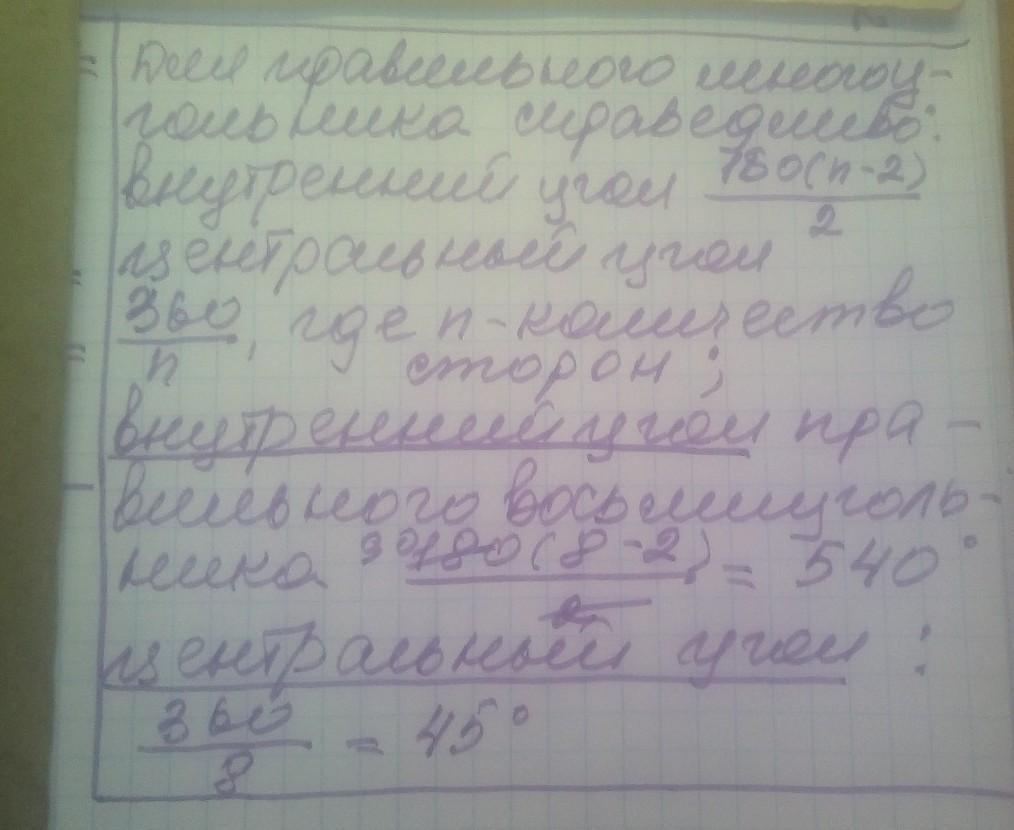 Для правильного многоу-
гольника справедливо:
внутренний угол 180(n-2)
2
центральный угол
360
n , где n - количество
сторон ;
внутренний угол пра -
вильного восьмиуголь-
ника 90 180(8-2) = 540°
2
центральный угол :
360
8 = 45°